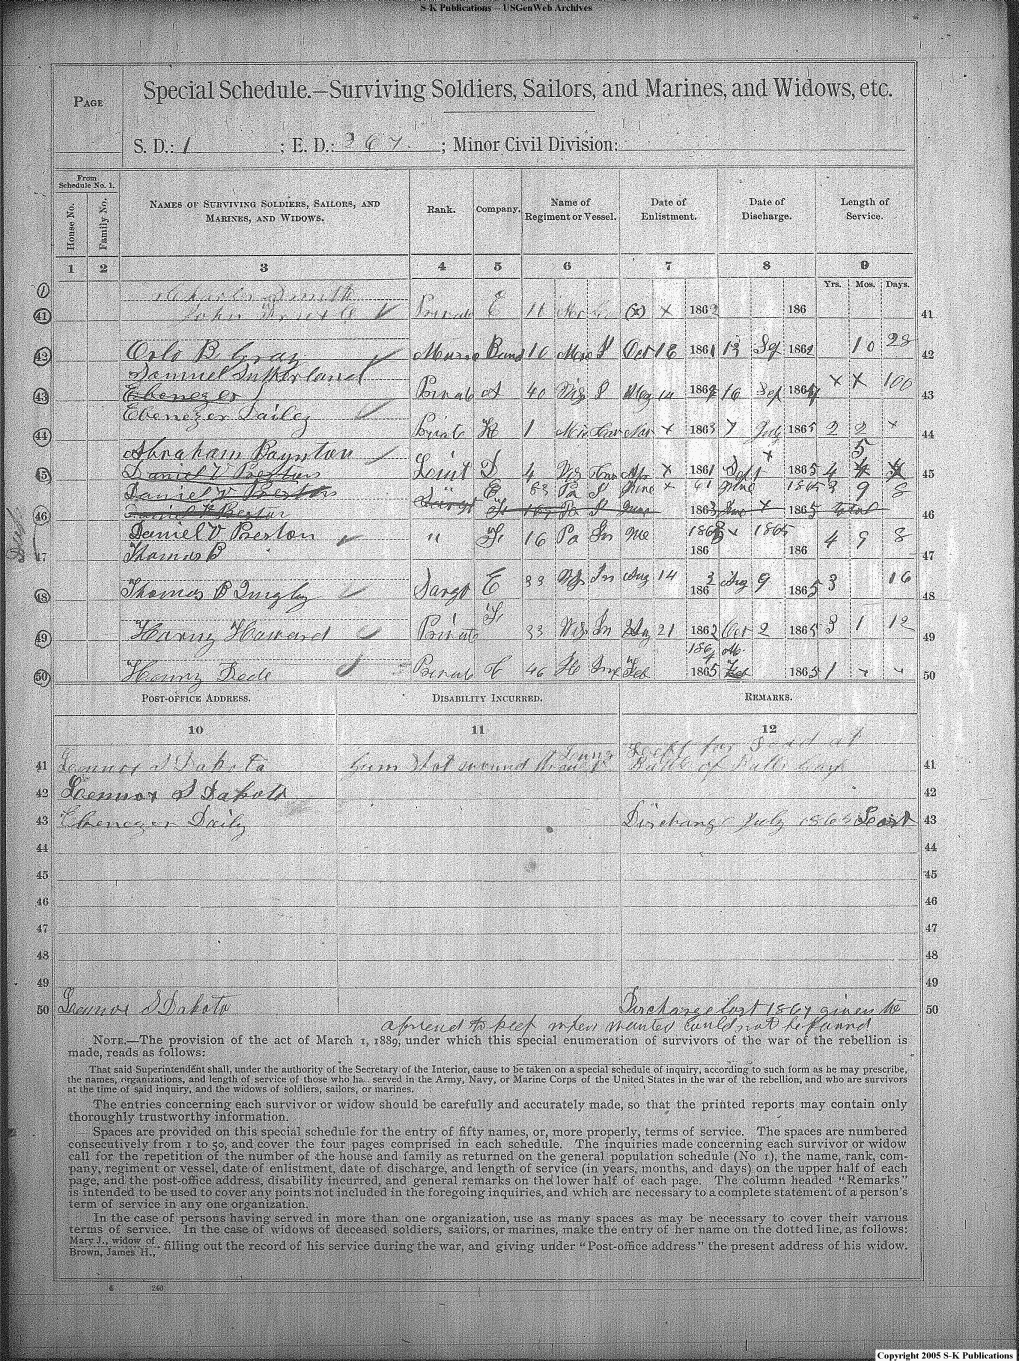 S-K Publications – USGenWeb Archives
PAGE
Special Schedule.—Surviving Soldiers, Sailors, and Marines, and Widows, etc.
S. D.: 1 ; E. D.: 267. ; Minor Civil Division:
From Schedule No. 1.
House No.
Family No.
NAMES OF SURVIVING SOLDIERS, SAILORS, AND MARINES, AND WIDOWS.
Rank.
Company.
Name of Regiment or Vessel.
Date of Enlistment.
Date of Discharge.
Length of Service.
1 2 3 4 5 6 7 8 9
Yrs. Mos. Days.
Charles Smith
41 John Private E 186 186 41
42 Orlo B Gray Band 16 Oct 18 1861 13 Sep 1862 10 28 42
Samuel Sutherland
43 Ebenezer Private A 40 Wis May 14 1864 16 Sep 1864 x x 100 43
Ebenezer Dailey
44 Privt K 1 x 1863 7 July 1865 2 2 x 44
Abraham Baynton 5
45 Daniel V Preston Leint D 4 Wis x 1861 Sept x 1865 4 45
Daniel V Preston E 83 Pa June 61 1865 3 9 8
46 Daniel V Preston Pa 1863 x 1865 total 46
Daniel V Preston " 16 Pa x 1865 4 9 8
47 Thomas B 186 186 47
48 Thomas B Quigley Sargt E 33 Wis In Aug 14 1862 Aug 9 1865 3 16 48
49 Harvy Howard Private F 33 Wis In Aug 21 1862 Oct 2 1865 3 1 12 49
1864
50 Henry Private C 46 Feb 1865 1865 1 50
POST-OFFICE ADDRESS.
DISABILITY INCURRED.
REMARKS.
10 11 12
41 Lennox S Dakota Gun Shot wound 41
42 Lennox S Dakota 42
43 Ebenezer Daily Discharge July 1865 Lost 43
44 44
45 45
46 46
47 47
48 48
49 49
50 Lennox S Dakota Discharge lost 1867 given to 50
a friend to keep when wanted could not be found
NOTE.—The provision of the act of March 1, 1889, under which this special enumeration of survivors of the war of the rebellion is
made, reads as follows:
That said Superintendent shall, under the authority of the Secretary of the Interior, cause to be taken on a special schedule of inquiry, according to such form as he may prescribe,
the names, organizations, and length of service of those who ha.. served in the Army, Navy, or Marine Corps of the United States in the war of the rebellion, and who are survivors
at the time of said inquiry, and the widows of soldiers, sailors, or marines.
The entries concerning each survivor or widow should be carefully and accurately made, so that the printed reports may contain only
thoroughly trustworthy information.
Spaces are provided on this special schedule for the entry of fifty names, or, more properly, terms of service. The spaces are numbered
consecutively from 1 to 50, and cover the four pages comprised in each schedule. The inquiries made concerning each survivor or widow
call for the repetition of the number of the house and family as returned on the general population schedule (No 1), the name, rank, com-
pany, regiment or vessel, date of enlistment, date of discharge, and length of service (in years, months, and days) on the upper half of each
page, and the post-office address, disability incurred, and general remarks on the lower half of each page. The column headed "Remarks"
is intended to be used to cover any points not included in the foregoing inquiries, and which are necessary to a complete statement of a person's
term of service in any one organization.
In the case of persons having served in more than one organization, use as many spaces as may be necessary to cover their various
terms of service. In the case of widows of deceased soldiers, sailors, or marines, make the entry of her name on the dotted line, as follows:
Mary J., widow of
Brown, James H., filling out the record of his service during the war, and giving under "Post-office address" the present address of his widow.
6 240
Copyright 2005 S-K Publications